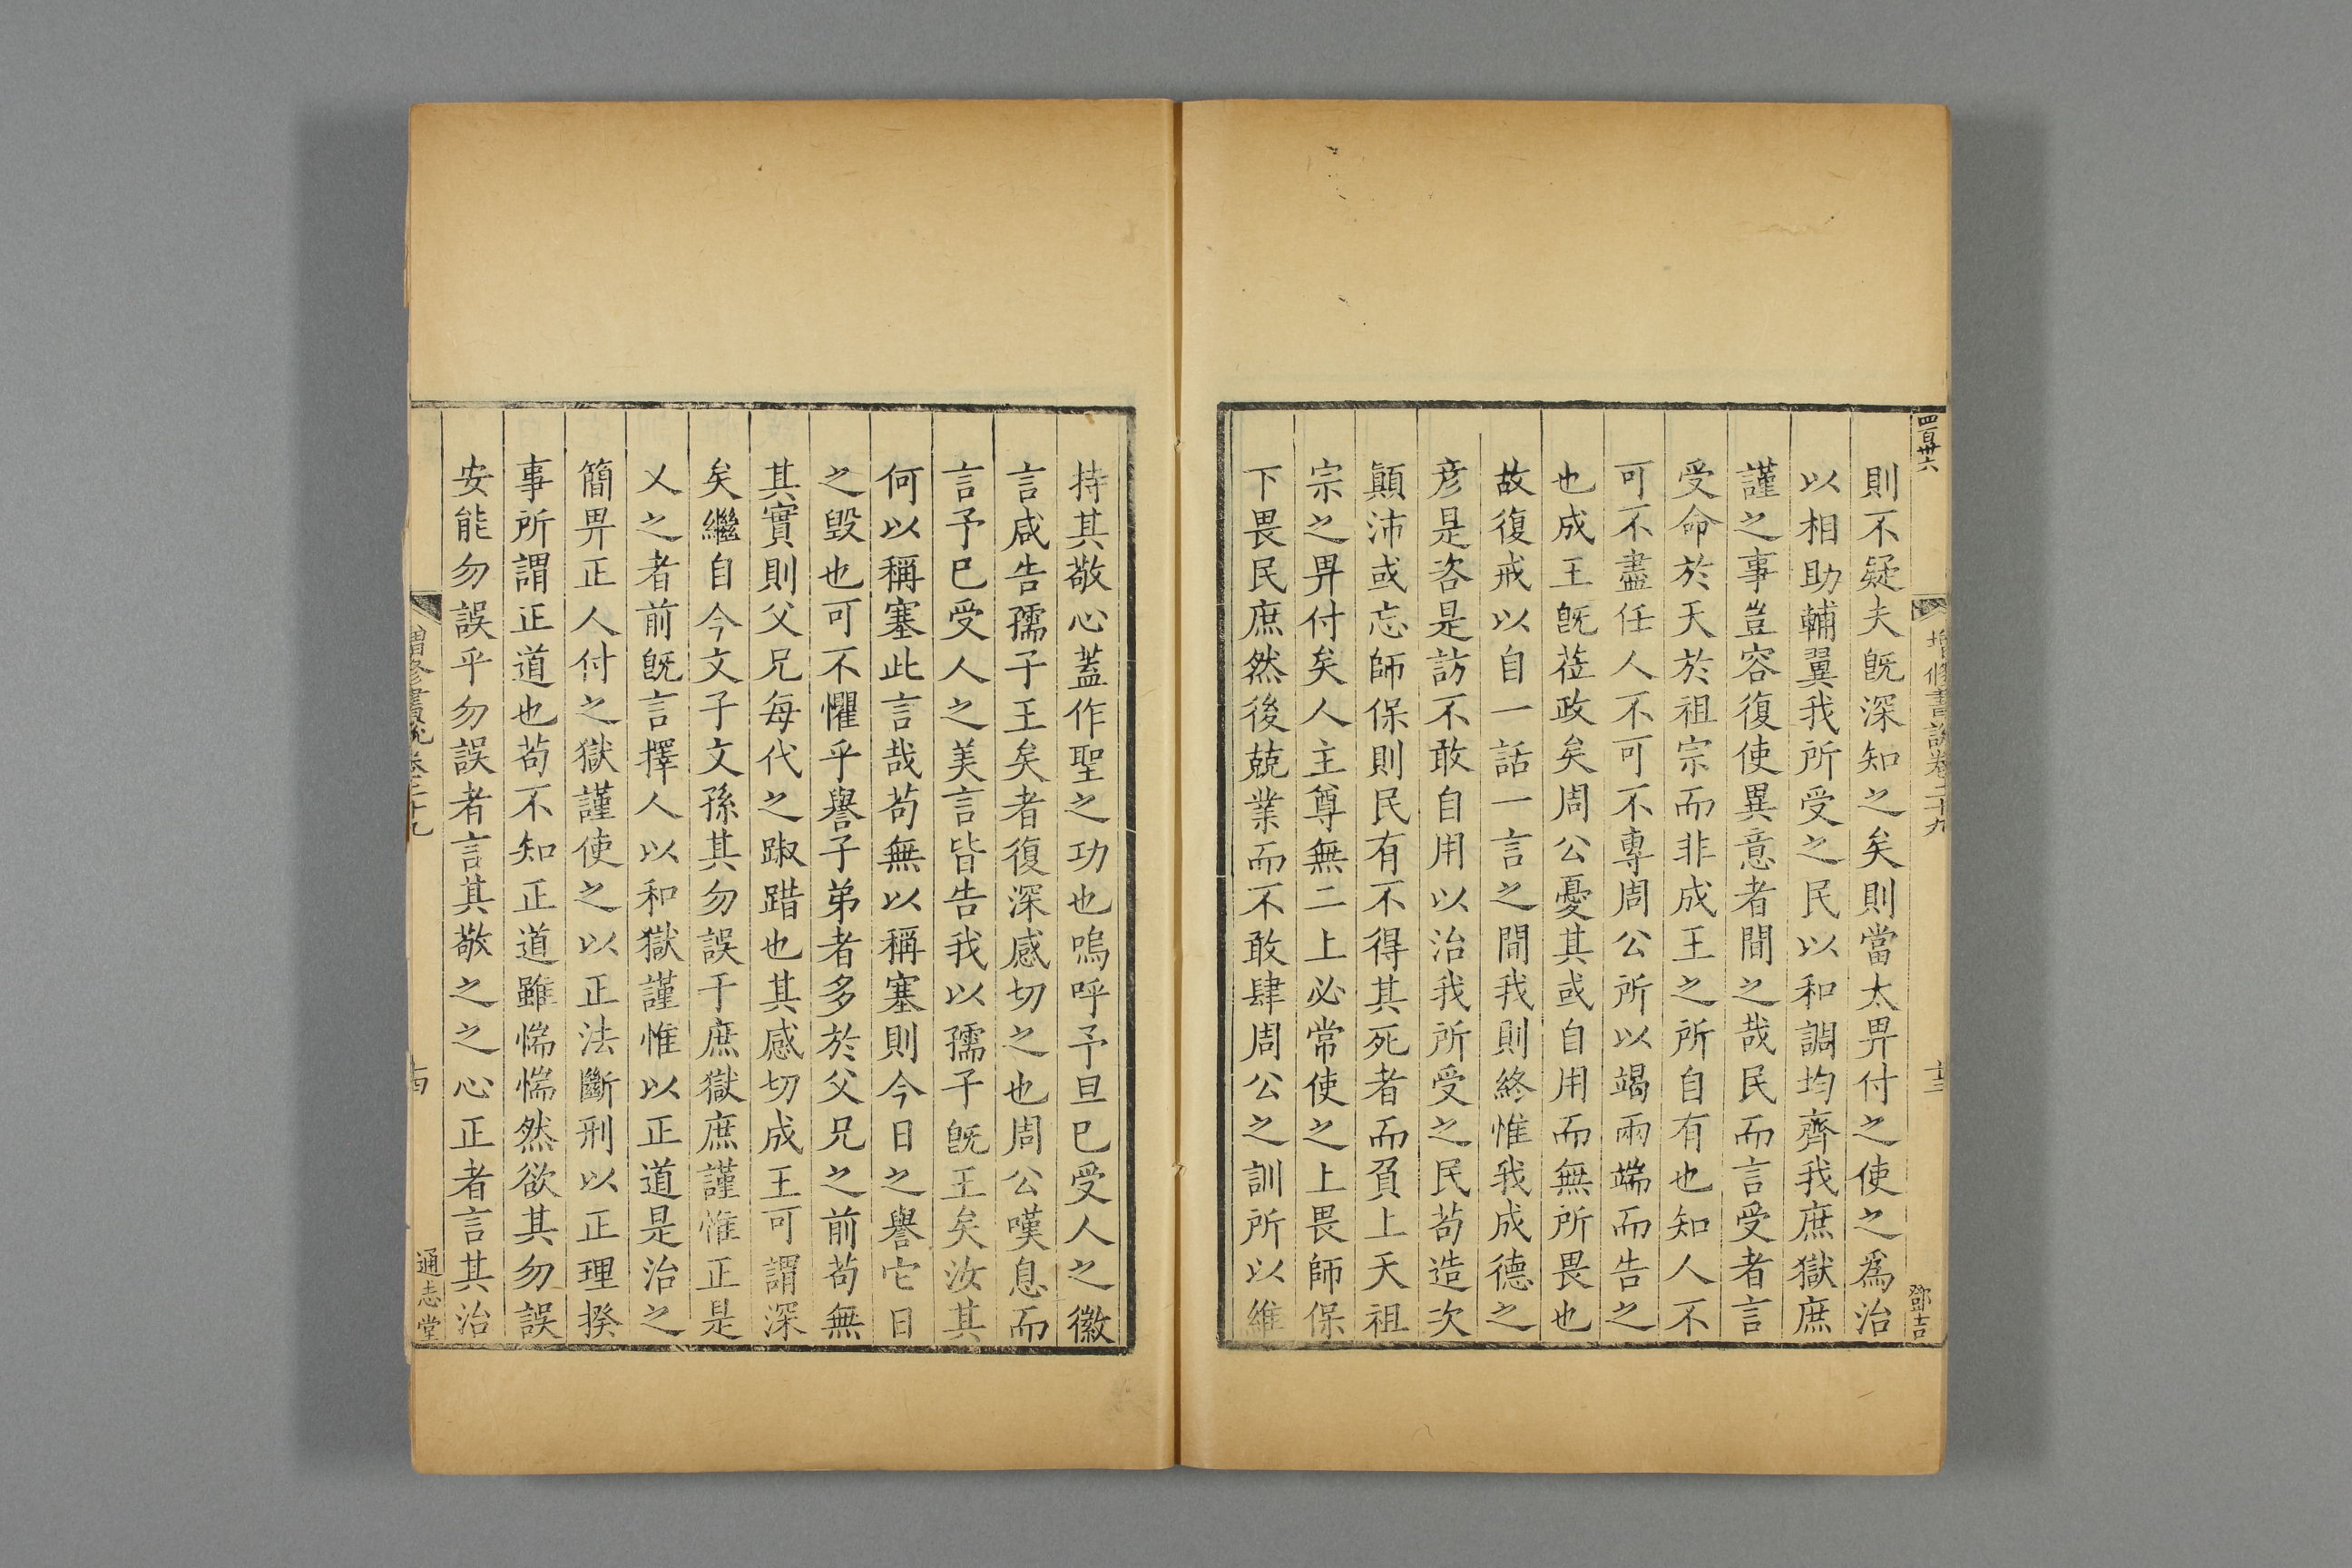 四百卅六
增修書說卷二十九
十三
鄧吉
則不疑夫旣深知之矣則當太畀付之使之爲治
以相助輔翼我所受之民以和調均齊我庶獄庶
謹之事豈容復使異意者間之哉民而言受者言
受命於天於祖宗而非成王之所自有也知人不
可不盡任人不可不專周公所以竭兩端而告之
也成王旣莅政矣周公憂其或自用而無所畏也
故復戒以自一話一言之間我則終惟我成德之
彦是咨是訪不敢自用以治我所受之民茍造次
顚沛或忘師保則民有不得其死者而負上天祖
宗之畀付矣人主尊無二上必常使之上畏師保
下畏民庶然後兢業而不敢肆周公之訓所以維
持其敬心蓋作聖之功也嗚呼予旦已受人之徽
言咸告孺子王矣者復深感切之也周公嘆息而
言予已受人之美言皆告我以孺子旣王矣汝其
何以稱塞此言哉茍無以稱塞則今日之譽它日
之毀也可不懼乎譽子弟者多於父兄之前茍無
其實則父兄每代之踧踖也其感切成王可謂深
矣繼自今文子文孫其勿誤于庶獄庶謹惟正是
乂之者前旣言擇人以和獄謹惟以正道是治之
簡畀正人付之獄謹使之以正法斷刑以正理揆
事所謂正道也茍不知正道雖惴惴然欲其勿誤
安能勿誤乎勿誤者言其敬之之心正者言其治
增修書說卷二十九
十四
通志堂